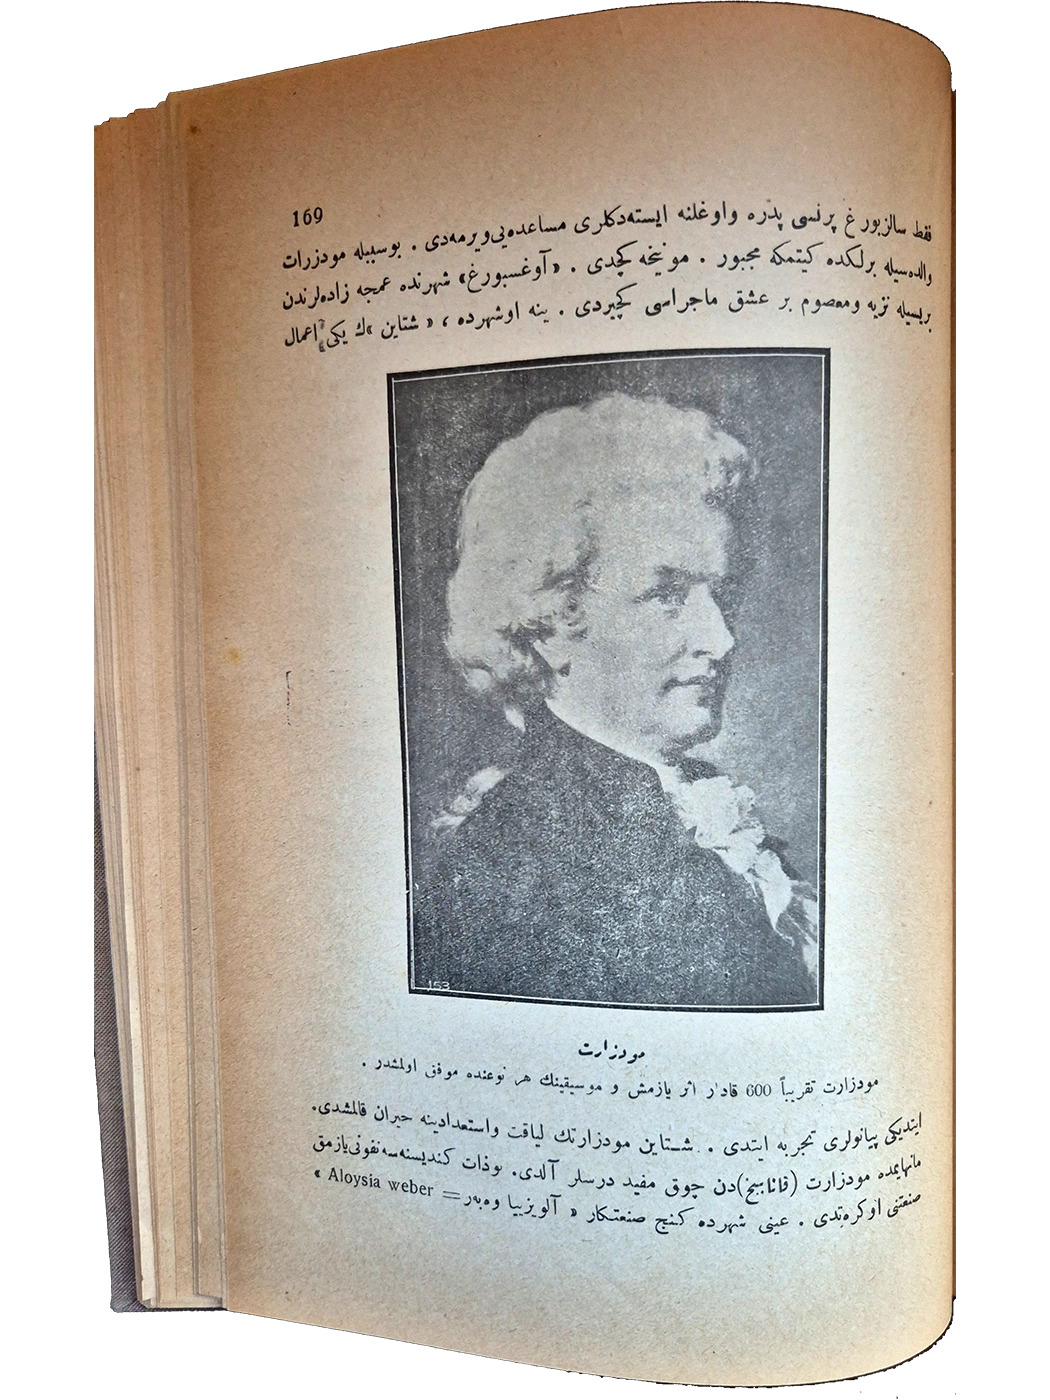 169
فقط سالزبورغ پرنسی پدره واوغلنه ایسته‌دکلری مساعده‌یی‌ویرمه‌دی . بوسببله مودزرات
والده‌سیله برلکده کیتمکه مجبور . مونیخه کچدی . « آوغسبورغ» شهرنده عمجه زاده‌لرندن
بریسیله نزیه ومعصوم بر عشق ماجراسی کچیردی . ینه اوشهرده ، « شتاین »ك یکی اعمال
153
مودزارت
مودزارت تقریباً 600 قادار اثر یازمش و موسیقینك هر نوعنده موفق اولمشدر .
ایتدیکی پیانولری تجربه ایتدی . شتاین مودزارتك لیاقت واستعدادینه حیران قالمشدی.
مانهایمده مودزارت (قاناببخ)دن چوق مفید درسلر آلدی. بوذات کندیسنه سه‌نفونی‌یازمق
صنعتنی اوکره‌تدی . عینی شهرده کنج صنعتکار « آلویزییا وه‌به‌ر = Aloysia weber »